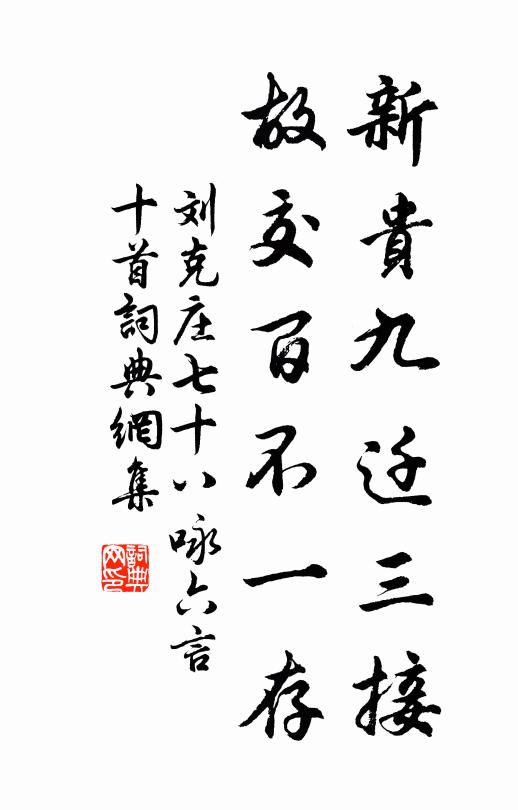 新貴九迁三接
故交百不一存
刘克庄七十八咏六言
十首詞典網集
詞典网印